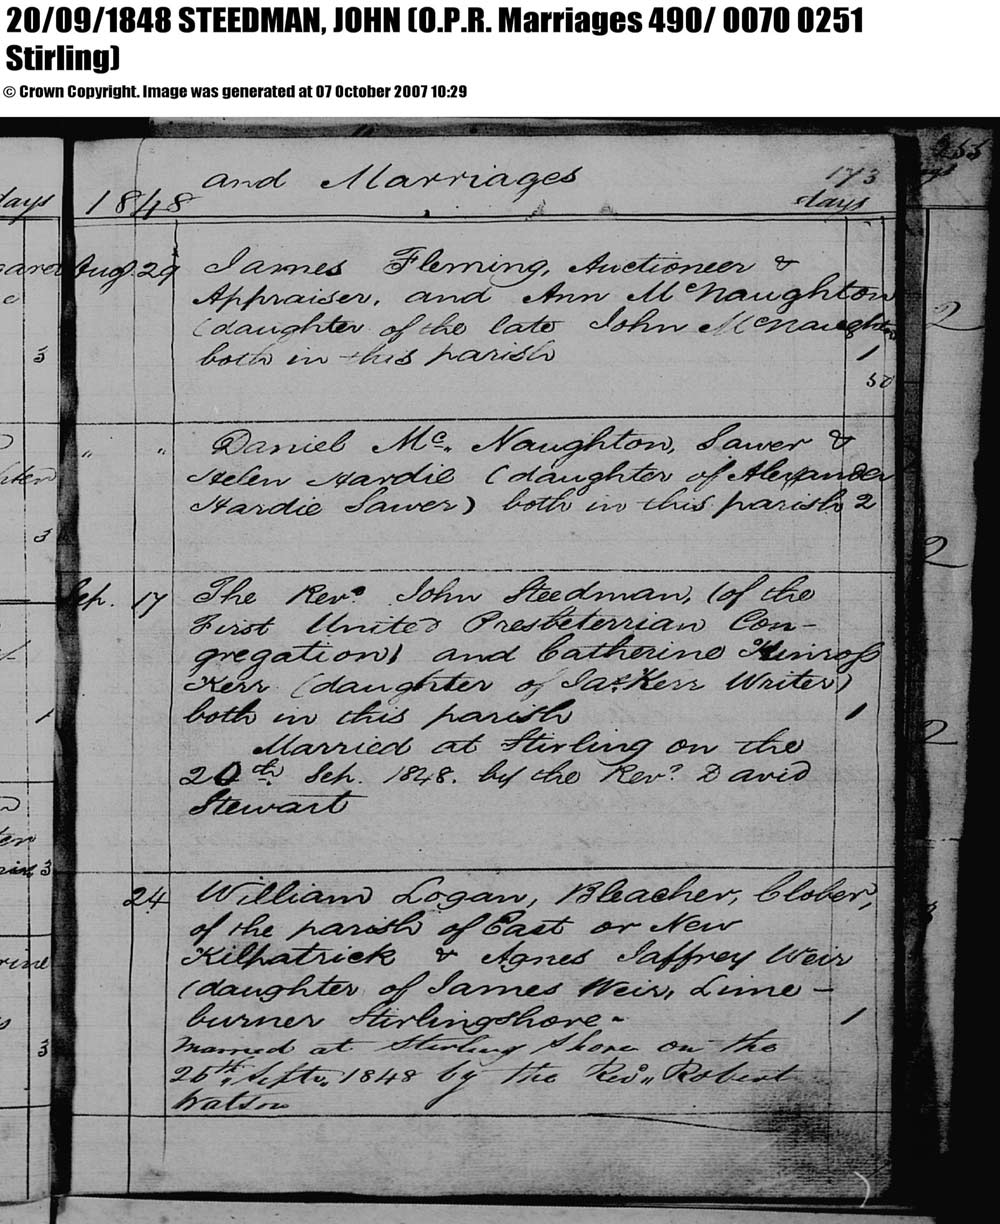 20/09/1848 STEEDMAN, JOHN (O.P.R. Marriages 490/ 0070 0251
Stirling)
© Crown Copyright. Image was generated at 07 October 2007 10:29
and Marriages 173
days 1848 days
Aug. 29 James Fleming, Auctioneer &
Appraiser, and Ann McNaughton
(daughter of the late John McNaughton
3 both in this parish 1
50
" " Daniel Mc. Naughton, Sawer &
Helen Hardie (daughter of Alexander
Hardie Sawer) both in this parish 2
3
Sep. 17 The Revd. John Steedman, (of the
First United Presbeterrian Con-
gregation) and Catherine Kinross
Kerr (daughter of Jas. Kerr Writer)
1 both in this parish 1
Married at Stirling on the
20th Sep. 1848. by the Revd. David
Stewart
3
24 William Logan, Bleacher, Clober,
of the parish of East or New
Kilpatrick & Agnes Jaffrey Weir
(daughter of James Weir, Lime-
burner Stirlingshore - 1
3 Married at Stirling Shore on the
25th, Septr, 1848 by the Revd, Robert
Watson
255
2
2
2